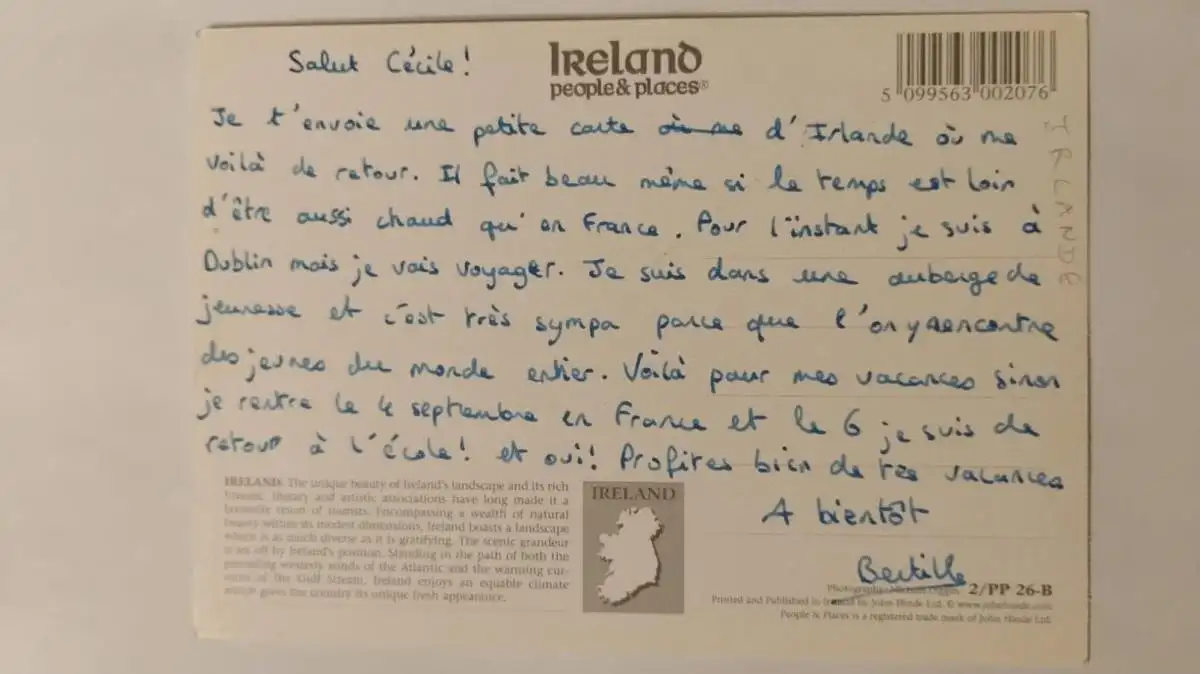 Salut Cécile!
IRELAND
people & places®
5 099563 002076
Je t'envoie une petite carte où me d'Irlande où me
voilà de retour. Il fait beau même si le temps est loin
d'être aussi chaud qu'en France. Pour l'instant je suis à
Dublin mais je vais voyager. Je suis dans une auberge de
jeunesse et c'est très sympa parce que l'on y rencontre
des jeunes du monde entier. Voilà pour mes vacances sinon
je rentre le 4 septembre en France et le 6 je suis de
retour à l'école! et oui! Profites bien de tes vacances
A bientôt
Bertille
IRLANDE
IRELAND. The unique beauty of Ireland's landscape and its rich
historic, literary and artistic associations have long made it a
favourite haunt of tourists. Encompassing a wealth of natural
beauty within its modest dimensions, Ireland boasts a landscape
which is as much diverse as it is gratifying. The scenic grandeur
is set off by Ireland's position. Standing in the path of both the
prevailing westerly winds of the Atlantic and the warming cur-
rents of the Gulf Stream, Ireland enjoys an equable climate
which gives the country its unique fresh appearance.
IRELAND
Photography: Michael Diggin 2/PP 26-B
Printed and Published in Ireland by John Hinde Ltd. © www.johnhinde.com
People & Places is a registered trade mark of John Hinde Ltd.